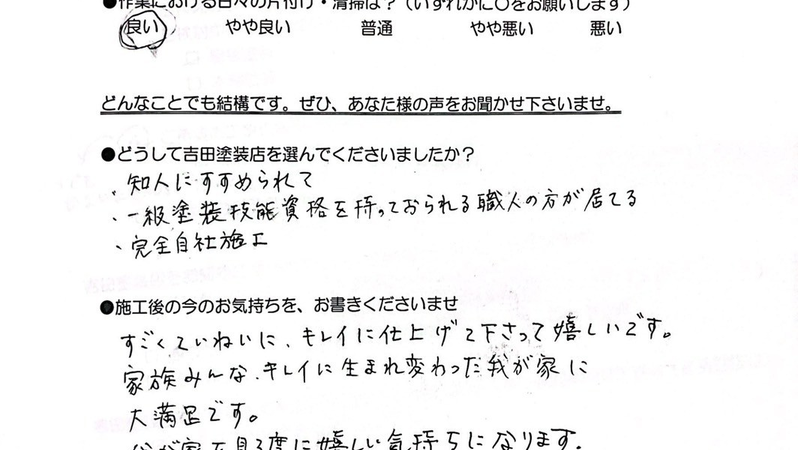 ●作業における日々の片付け・清掃は?(いずれかに〇をお願いします)
良い やや良い 普通 やや悪い 悪い
どんなことでも結構です。ぜひ、あなた様の声をお聞かせ下さいませ。
●どうして吉田塗装店を選んでくださいましたか?
・知人にすすめられて
・一級塗装技能資格を持っておられる職人の方が居てる
・完全自社施工
●施工後の今のお気持ちを、お書きくださいませ
すごくていねいに、キレイに仕上げて下さって嬉しいです。
家族みんな、キレイに生まれ変わった我が家に
大満足です。
我が家を見る度に嬉しい気持ちになります。